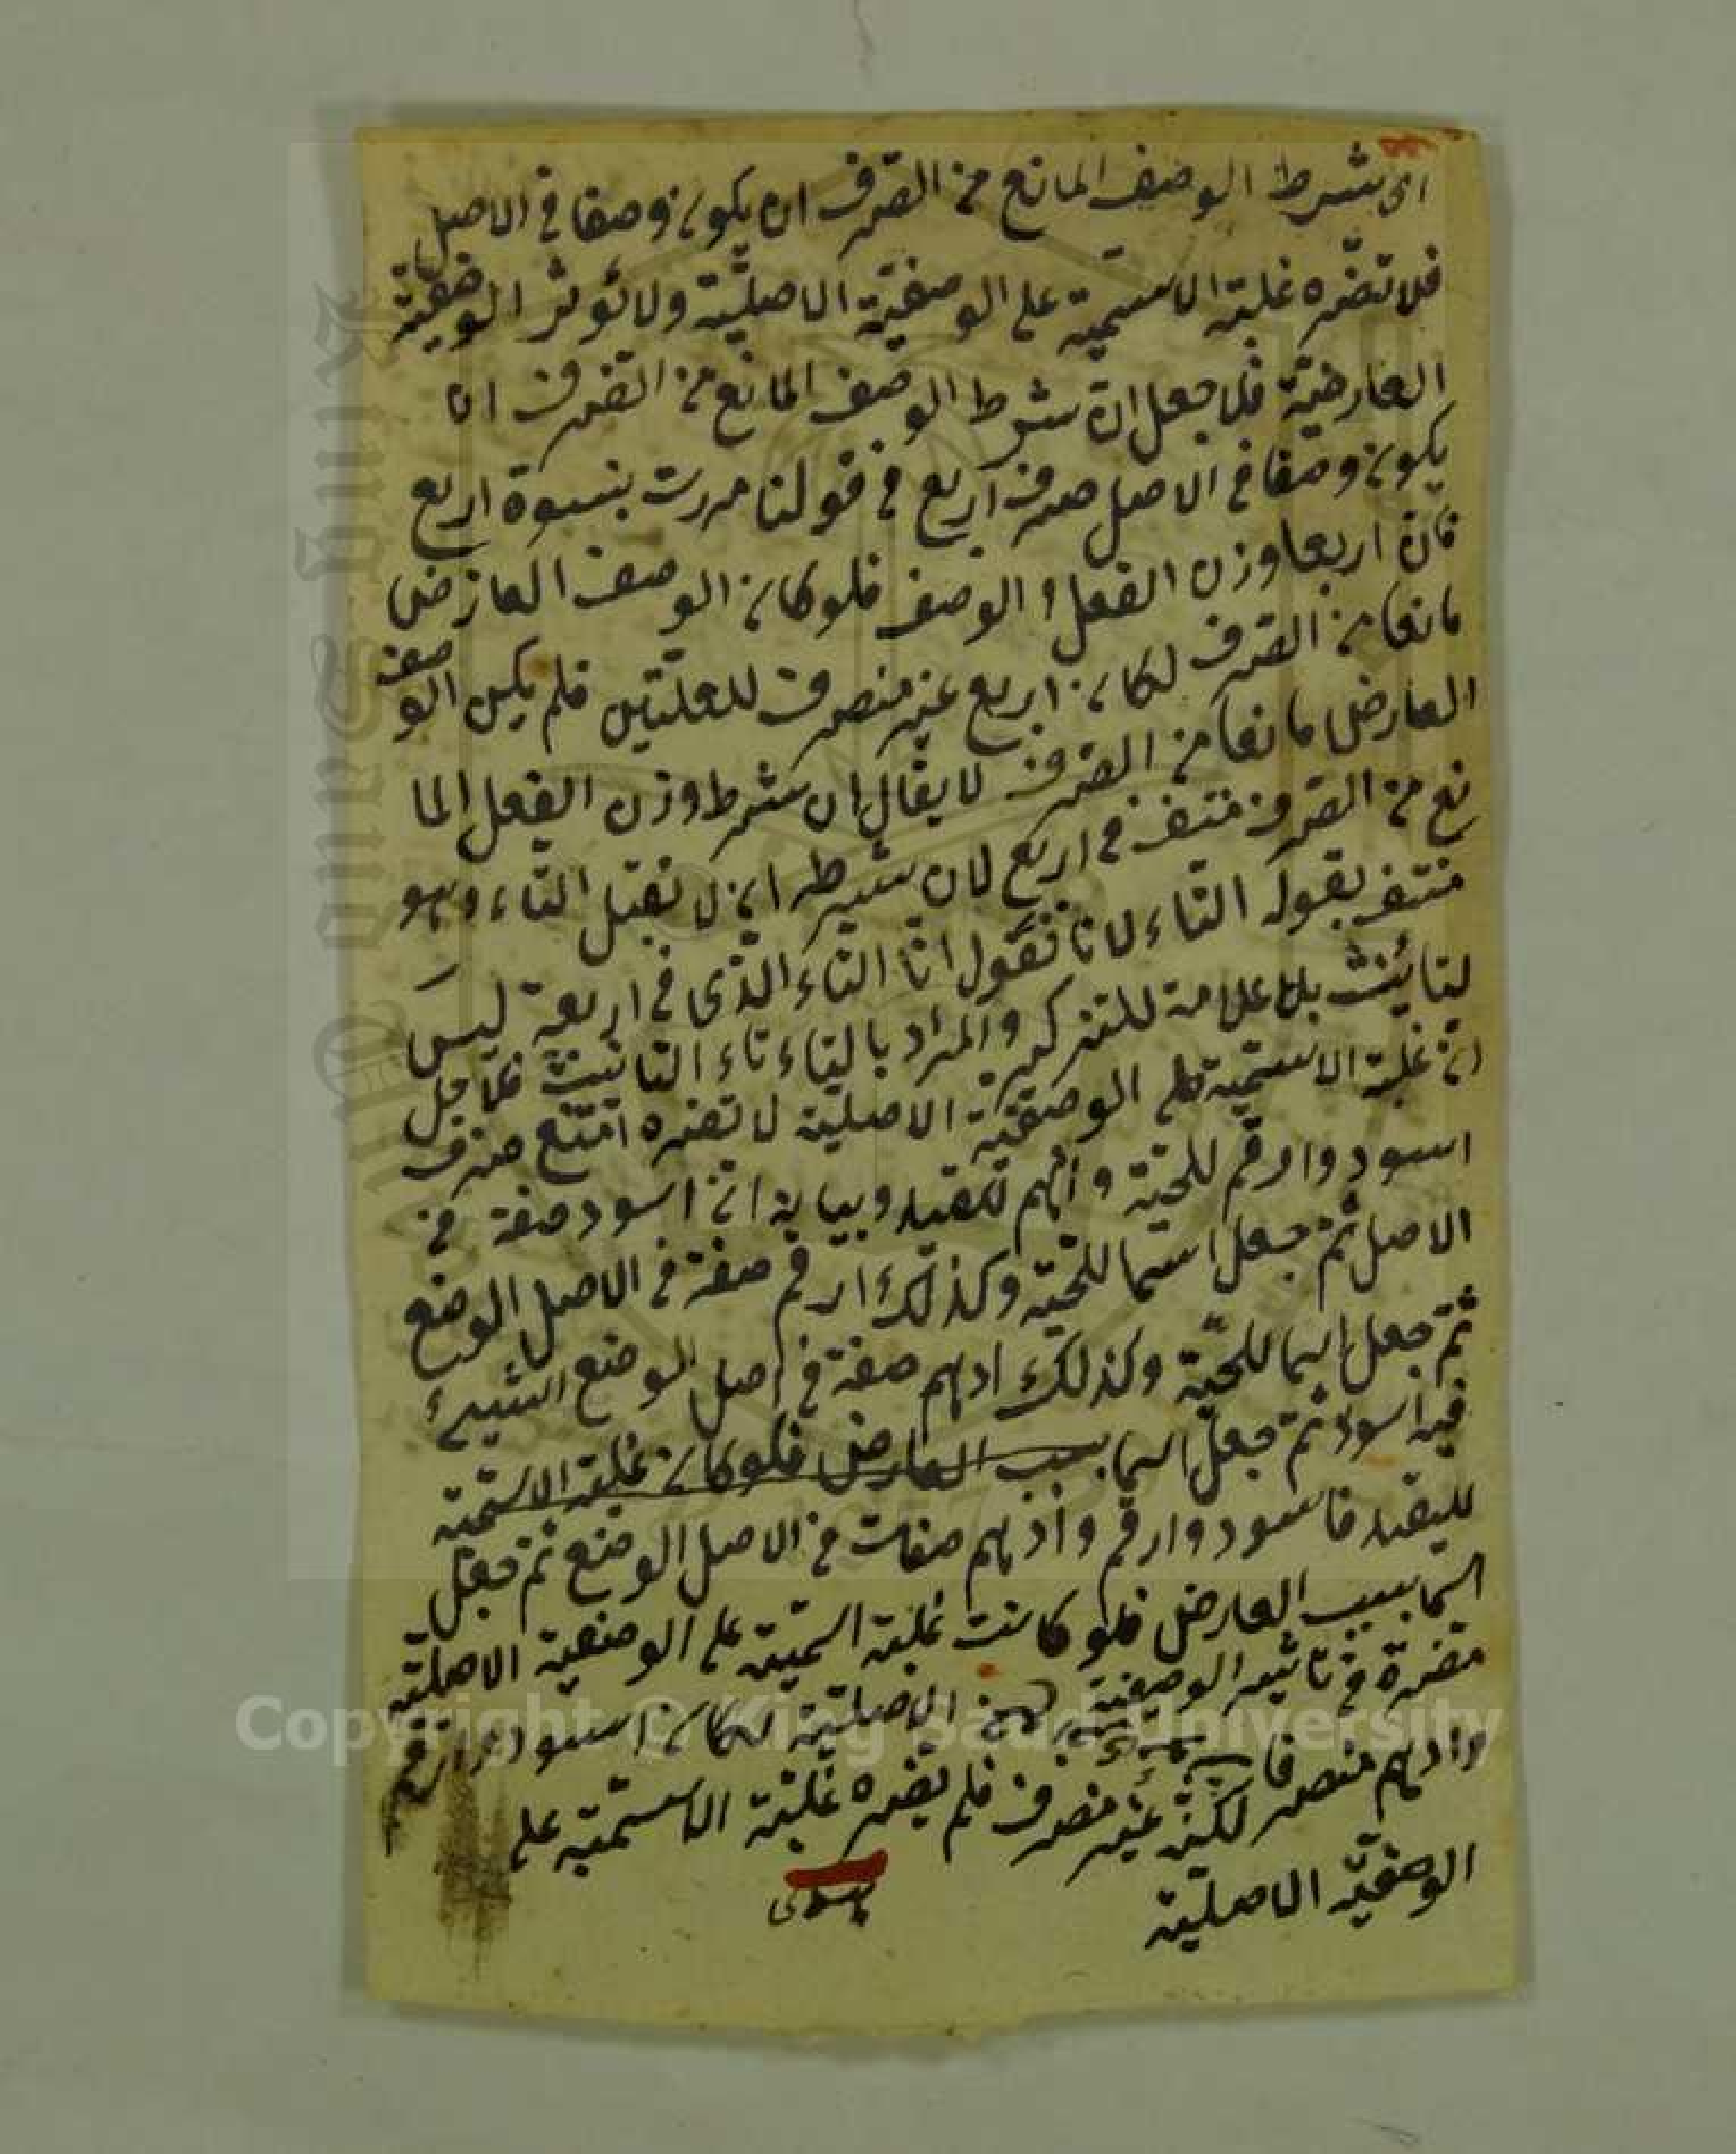 اى شرط الوصف المانع من الصرف ان يكون وصفا فى الاصل
فلا تضره غلبة الاسمية على الوصفية الاصلية ولا تؤثر الوصفية
العارضية فلاجل ان شرط الوصف المانع من الصرف ان
يكون وصفا فى الاصل صرف اربع فى قولنا مررت بنسوة اربع
فان اربعا وزن الفعل و الوصف فلو كان الوصف العارضى
مانعا من الصرف لكان اربع غير منصرف للعلتين فلم يكن الوصف
العارضى مانعا من الصرف لا يقال ان شرط وزن الفعل الما
نع من الصرف منتف فى اربع لان شرطه ان لا تقبل التاء وهو
منتف بقوله التاء لانا نقول ان التاء الذى فى اربعة ليس
لتانيث بل علامة للتذكير والمراد بالتاء تاء التانيث فلاجل
ان غلبة الاسمية على الوصفية الاصلية لا تضره امتنع صرف
اسود وارقم للحية وادهم للقيد وبيانه ان اسود صفة فى
الاصل ثم جعل اسما للحية وكذلك ارقم صفة فى الاصل الوضع
ثم جعل اسما للحية وكذلك ادهم صفة فى اصل الوضع الشيء
فيه اسود ثم جعل اسما بسبب العارض فلو كان غلبة الاسمية
للقيد فاسود وارقم وادهم صفات فى الاصل الوضع ثم جعل
اسما بسبب العارض فلو كانت غلبة اسمية على الوصفية الاصلية
مضرة فى تاثير الوصفية الاصلية لكان اسود وارقم
وادهم منصرفا لكنه غير منصرف فلم يضره غلبة الاسمية على
الوصفية الاصلية
Copyright © King Saud University